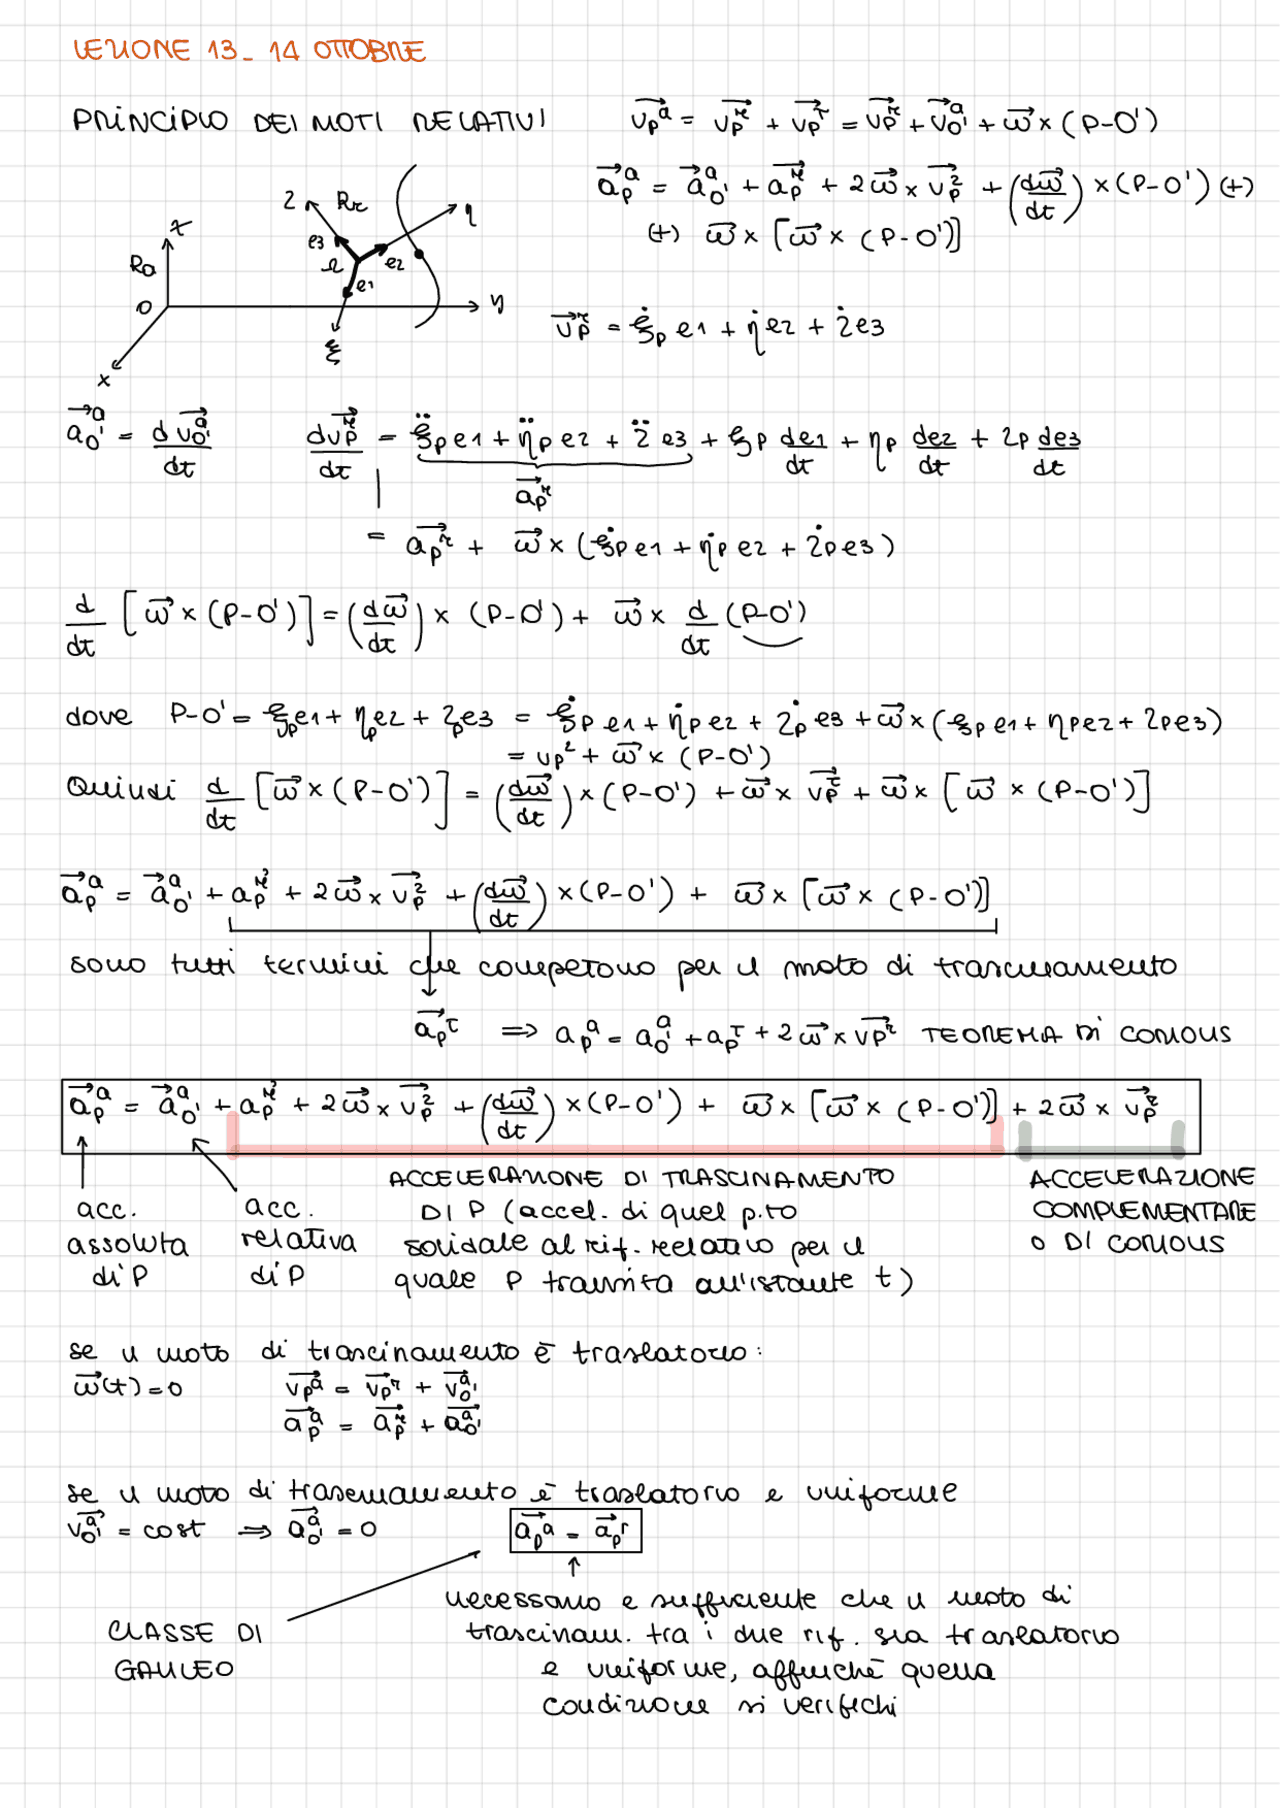 LEZIONE 13_ 14 OTTOBRE
PRINCIPIO DEI MOTI RELATIVI
v⃗_P^a = v⃗_P^r + v⃗_P^τ = v⃗_P^r + v⃗_O'^a + ω⃗ × (P-O')
a⃗_P^a = a⃗_O'^a + a⃗_P^r + 2ω⃗ × v⃗_P^r + (dω⃗/dt) × (P-O') (+)
(+) ω⃗ × [ω⃗ × (P-O')]
z R_a O x y
ζ R_r e3 Ω e2 e1 η ξ
v⃗_P^r = ξ̇_P e1 + η̇ e2 + ζ̇ e3
a⃗_O'^a = d v⃗_O'^a/dt
dv⃗_P^r/dt = ξ̈_P e1 + η̈_P e2 + ζ̈ e3 + ξ_P de1/dt + η_P de2/dt + ζ_P de3/dt
a⃗_P^r
= a⃗_P^r + ω⃗ × (ξ̇_P e1 + η̇_P e2 + ζ̇_P e3)
d/dt [ω⃗ × (P-O')] = (dω⃗/dt) × (P-O') + ω⃗ × d/dt (P-O')
dove P-O' = ξ_P e1 + η_P e2 + ζ_P e3 = ξ̇_P e1 + η̇_P e2 + ζ̇_P e3 + ω⃗ × (ξ_P e1 + η_P e2 + ζ_P e3)
= v_P^r + ω⃗ × (P-O')
Quindi d/dt [ω⃗ × (P-O')] = (dω⃗/dt) × (P-O') + ω⃗ × v⃗_P^r + ω⃗ × [ω⃗ × (P-O')]
a⃗_P^a = a⃗_O'^a + a_P^r + 2ω⃗ × v⃗_P^r + (dω⃗/dt) × (P-O') + ω⃗ × [ω⃗ × (P-O')]
sono tutti termini che competono per il moto di trascinamento
a⃗_P^τ ⇒ a_P^a = a_O'^a + a_P^τ + 2ω⃗ × v⃗_P^r TEOREMA DI CORIOLIS
a⃗_P^a = a⃗_O'^a + a_P^r + 2ω⃗ × v⃗_P^r + (dω⃗/dt) × (P-O') + ω⃗ × [ω⃗ × (P-O')] + 2ω⃗ × v⃗_P^r
acc.
assoluta
di P
acc.
relativa
di P
ACCELERAZIONE DI TRASCINAMENTO
DI P (accel. di quel p.to
solidale al rif. relativo per il
quale P transita all'istante t)
ACCELERAZIONE
COMPLEMENTARE
O DI CORIOLIS
se il moto di trascinamento è traslatorio:
ω⃗(t)=0 v⃗_P^a = v⃗_P^r + v⃗_O'^a
a⃗_P^a = a⃗_P^r + a⃗_O'^a
se il moto di trascinamento è traslatorio e uniforme
v⃗_O'^a = cost ⇒ a⃗_O'^a = 0 a⃗_P^a = a⃗_P^r
CLASSE DI
GALILEO
necessario e sufficiente che il moto di
trascinam. tra i due rif. sia traslatorio
e uniforme, affinché quella
condizione si verifichi